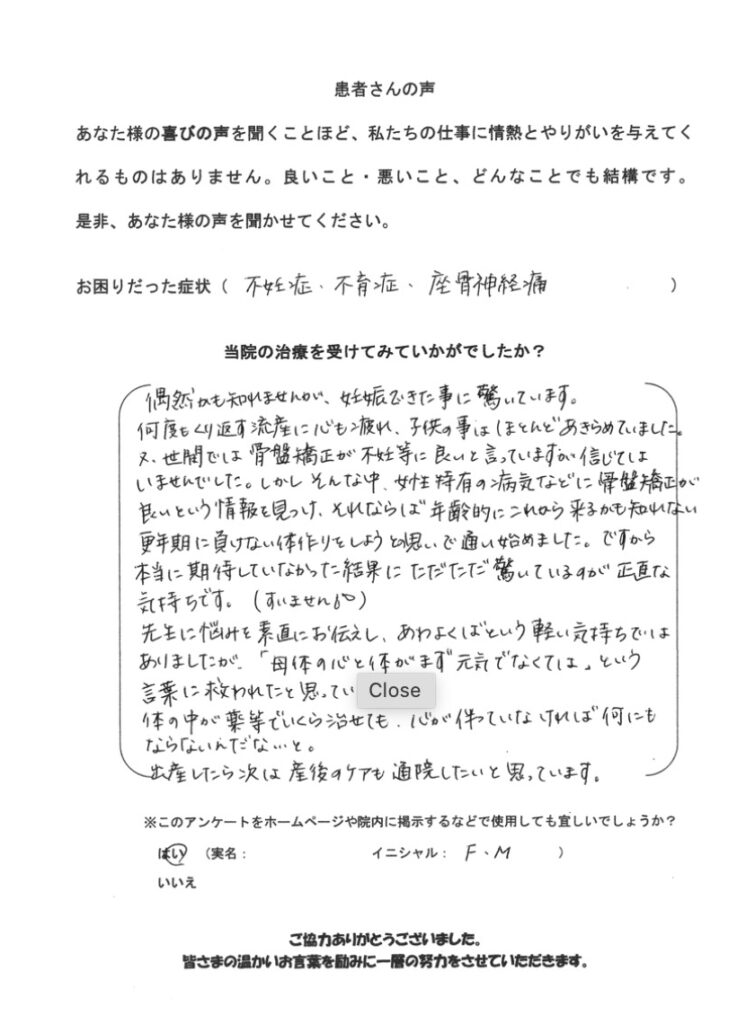 患者さんの声
あなた様の喜びの声を聞くことほど、私たちの仕事に情熱とやりがいを与えてく
れるものはありません。良いこと・悪いこと、どんなことでも結構です。
是非、あなた様の声を聞かせてください。
お困りだった症状（ 不妊症、不育症、座骨神経痛 ）
当院の治療を受けてみていかがでしたか？
偶然かも知れませんが、妊娠できた事に驚いています。
何度もくり返す流産に心も疲れ、子供の事はほとんどあきらめていました。
又、世間では骨盤矯正が不妊等に良いと言っていますが信じては
いませんでした。しかしそんな中、女性特有の病気などに骨盤矯正が
良いという情報を見つけ、それならば年齢的にこれから来るかも知れない
更年期に負けない体作りをしようと思いで通い始めました。ですから
本当に期待していなかった結果にただただ驚いているのが正直な
気持ちです。（すいません）
先生に悩みを素直にお伝えし、あわよくばという軽い気持ちでは
ありましたが、「母体の心と体がまず元気でなくては」という
言葉に救われたと思ってい
Close
体の中が薬等でいくら治せても、心が伴っていなければ何にも
ならないんだないと。
出産したら次は産後のケアも通院したいと思っています。
※このアンケートをホームページや院内に掲示するなどで使用しても宜しいでしょうか？
はい （実名： イニシャル： F・M ）
いいえ
ご協力ありがとうございました。
皆さまの温かいお言葉を励みに一層の努力をさせていただきます。